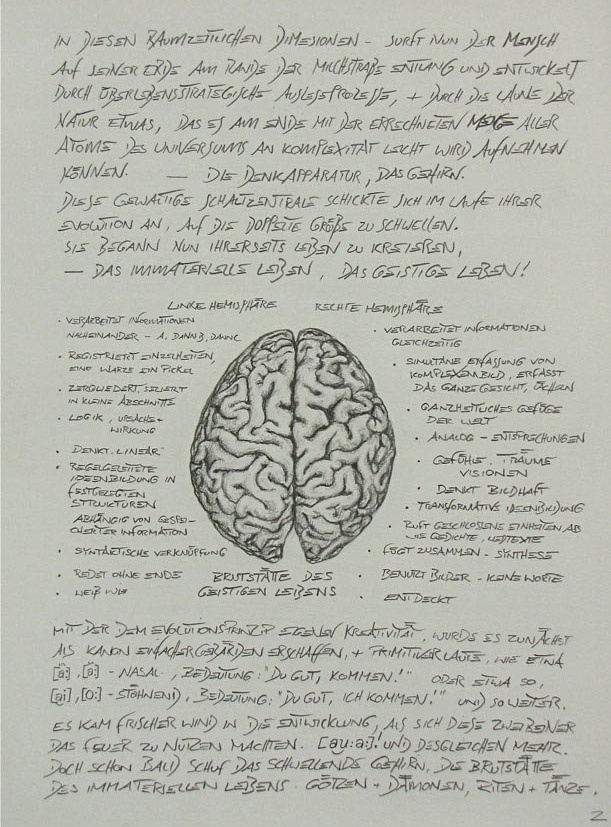 IN DIESEN RAUMZEITLICHEN DIMESIONEN – SURFT NUN DER MENSCH
AUF SEINER ERDE AM RANDE DER MILCHSTRAßE ENTLANG UND ENTWICKELT
DURCH ÜBERLEBENSSTRATEGISCHE AUSLESEPROZESSE, + DURCH DIE LAUNE DER
NATUR ETWAS, DAS ES AM ENDE MIT DER ERRECHNETEN MENGE ALLER
ATOME DES UNIVERSUMS AN KOMPLEXITÄT LEICHT WIRD AUFNEHMEN
KÖNNEN. — DIE DENKAPPARATUR, DAS GEHIRN.
DIESE GEWALTIGE SCHALTZENTRALE SCHICKTE SICH IM LAUFE IHRER
EVOLUTION AN, AUF DIE DOPPELTE GRÖßE ZU SCHWELLEN.
SIE BEGANN NUN IHRERSEITS LEBEN ZU KREIEREN,
— DAS IMMATERIELLE LEBEN, DAS GEISTIGE LEBEN!
LINKE HEMISPHÄRE
· VERARBEITET INFORMATIONEN
NACHEINANDER – A, DANN B, DANN C
· REGISTRIERT EINZELHEITEN,
EINE WARZE EIN PICKEL
· ZERGLIEDERT, SEZIERT
IN KLEINE ABSCHNITTE
· LOGIK, URSACHE +
WIRKUNG
· DENKT LINEAR
· REGELGELEITETE
IDEENBILDUNG IN
FESTGELEGTEN
STRUKTUREN
ABHÄNGIG VON GESPEI-
CHERTER INFORMATION
· SYNTAKTISCHE VERKNÜPFUNG
· REDET OHNE ENDE
· WEIß WIE
RECHTE HEMISPHÄRE
· VERARBEITET INFORMATIONEN
GLEICHZEITIG
· SIMULTANE ERFASSUNG VON
KOMPLEXEM BILD, ERFASST
DAS GANZE GESICHT,
· GANZHEITLICHES GEFÜGE
DER WELT
· ANALOG – ENTSPRECHUNGEN
· GEFÜHLE, TRÄUME
VISIONEN
· DENKT BILDHAFT
· TRANSFORMATIVE IDEENBILDUNG
· RUFT GESCHLOSSENE EINHEITEN AB
WIE GEDICHTE, LIEDTEXTE
· FÜGT ZUSAMMEN – SYNTHESE
· BENUTZT BILDER – KEINE WORTE
· ENTDECKT
BRUTSTÄTTE DES
GEISTIGEN LEBENS
MIT DER DEM EVOLUTIONSPRINZIP EIGENEN KREATIVITÄT, WURDE ES ZUNÄCHST
ALS KANON EINFACHER GEBÄRDEN ERSCHAFFEN, + PRIMITIVER LAUTE, WIE ETWA
[ã:], [ã] – NASAL, BEDEUTUNG: "DU GUT, KOMMEN!" ODER ETWA SO,
[ai], [o:] – STÖHNEND, BEDEUTUNG: "DU GUT, ICH KOMMEN!" UND SO WEITER.
ES KAM FRISCHER WIND IN DIE ENTWICKLUNG, ALS SICH DIESE ZWEIBEINER
DAS FEUER ZU NUTZEN MACHTEN. [au:a:]! UND DESGLEICHEN MEHR.
DOCH SCHON BALD SCHUF DAS SCHWELLENDE GEHIRN, DIE BRUTSTÄTTE
DES IMMATERIELLEN LEBENS. GÖTZEN + DÄMONEN, RITEN + TÄNZE.
2